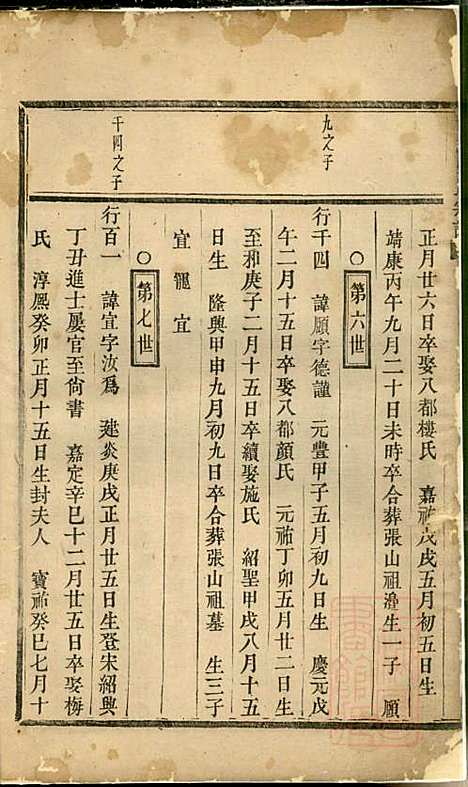 正月廿六日卒娶八都樓氏　嘉祐戊戌五月初五日生
靖康丙午九月二十日未時卒合葬張山祖邉生一子　願
○第六世
九之子
行千四　諱願字德謹　元豐甲子五月初九日生　慶元戊
午二月十五日卒娶八都顏氏　元祐丁卯五月廿二日生
至邪庚子二月十五日卒續娶施氏　紹聖甲戌八月十五
日生　隆興甲申九月初九日卒合葬張山祖墓　生三子
宜　寵　宣
○第七世
千四之子
行百一　諱宜字汝為　建炎庚戌正月廿五日生登宋紹興
丁丑進士屢官至尙書　嘉定辛巳十二月廿五日卒娶梅
氏　淳熈癸卯正月十五日生封夫人　寶祐癸巳七月十